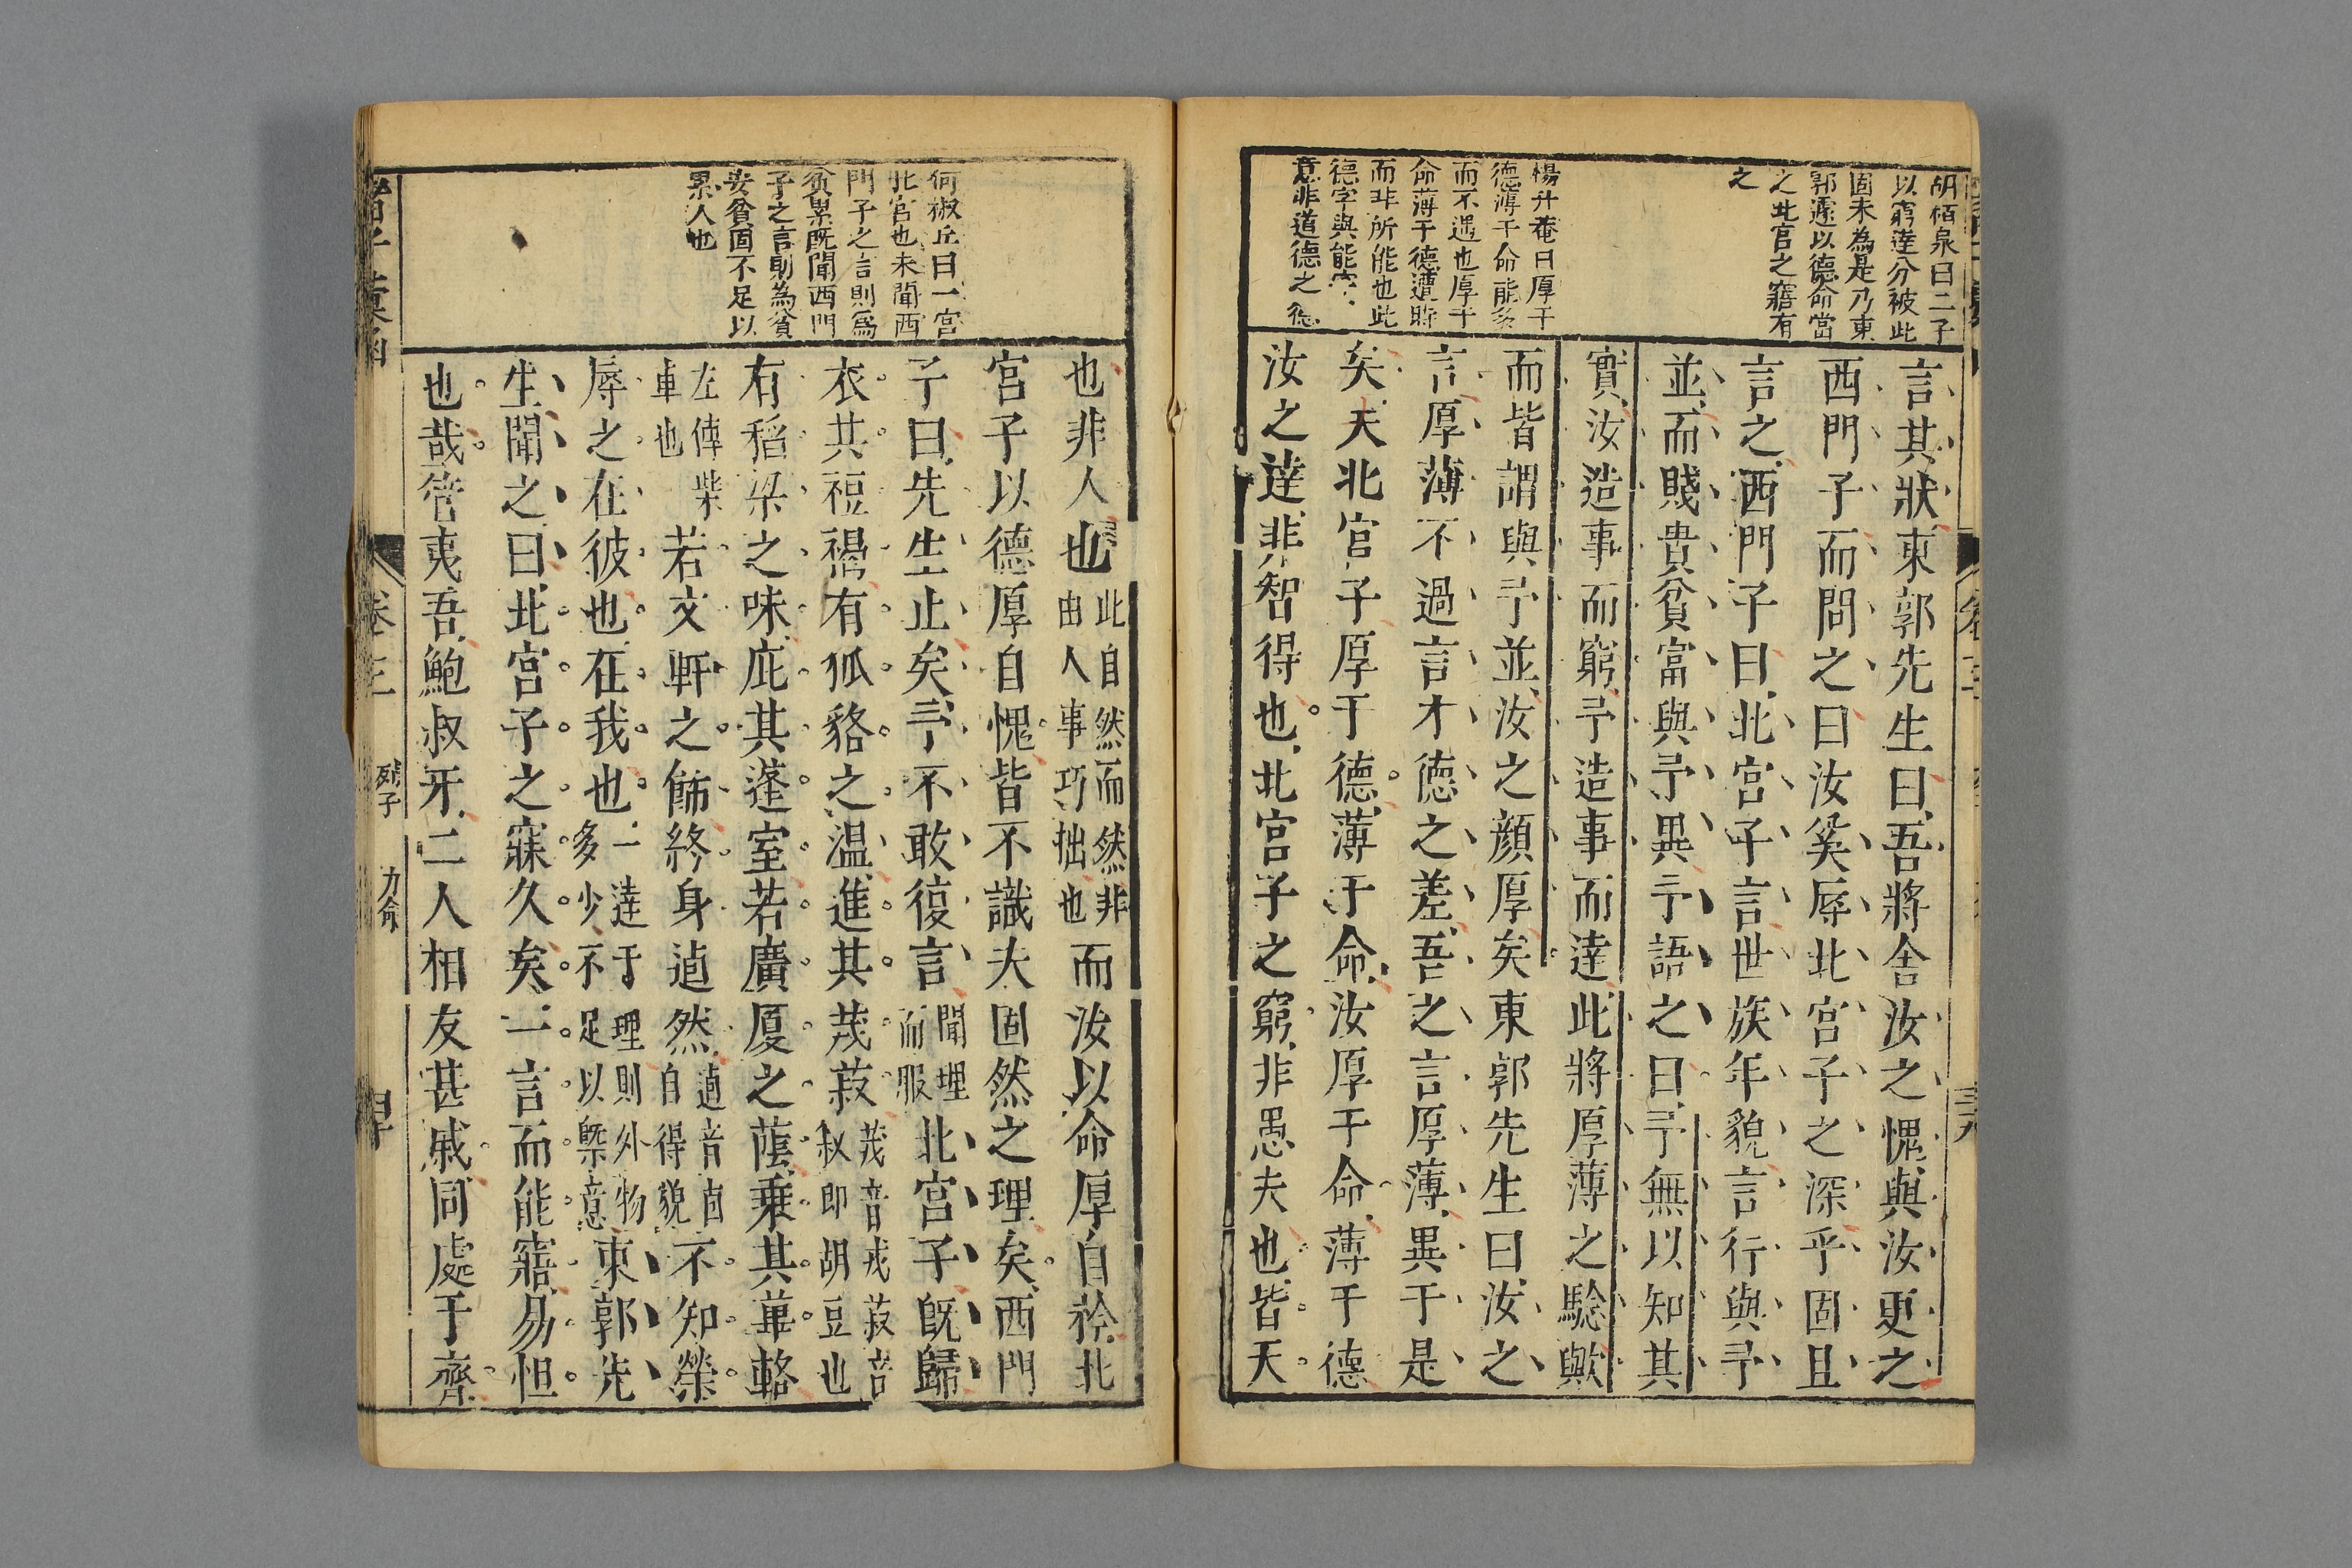 胡栢泉曰二子
以窮達分被此
固未為是乃東
郭遽以德命當
之北宮之寤有
之
楊升菴曰厚于
德薄于命能多
而不遇也厚于
命薄于德遭時
而非所能也此
德字與能字
意非道德之德
言其狀東郭先生曰吾將舍汝之愧與汝更之
西門子而問之曰汝奚辱北宮子之深乎固且
言之西門子曰北宮子言世族年貌言行與予
並而賤貴貧富與予異予語之曰予無以知其
實汝造事而窮予造事而達此將厚薄之驗歟
而皆謂與予並汝之顏厚矣東郭先生曰汝之
言厚薄不過言才德之差吾之言厚薄異于是
矣夫北宮子厚于德薄于命汝厚于命薄于德
汝之達非智得也北宮子之窮非愚夫也皆天
何椒丘曰一宮
北宮也未聞西
門子之言則為
貧累既聞西門
子之言則為貧
安貧固不足以
累人也
也非人也此自然而然非由人事巧拙也而汝以命厚自矜北
宮子以德厚自愧皆不識夫固然之理矣西門
子曰先生止矣予不敢復言聞理而服北宮子既歸
衣其裋褐有狐貉之溫進其茂菽茂音戎菽音叔即胡豆也
有稻粱之味庇其蓬室若廣厦之蔭乗其蓽輅
左傳柴車也若文軒之飾終身逌然逌音由自得貌不知榮
辱之在彼也在我也一達于理則外物多少不足以槩意東郭先
生聞之曰北宮子之寐久矣一言而能寤易怛
也哉管夷吾鮑叔牙二人相友甚戚同處于齊
卷三
列子
力命